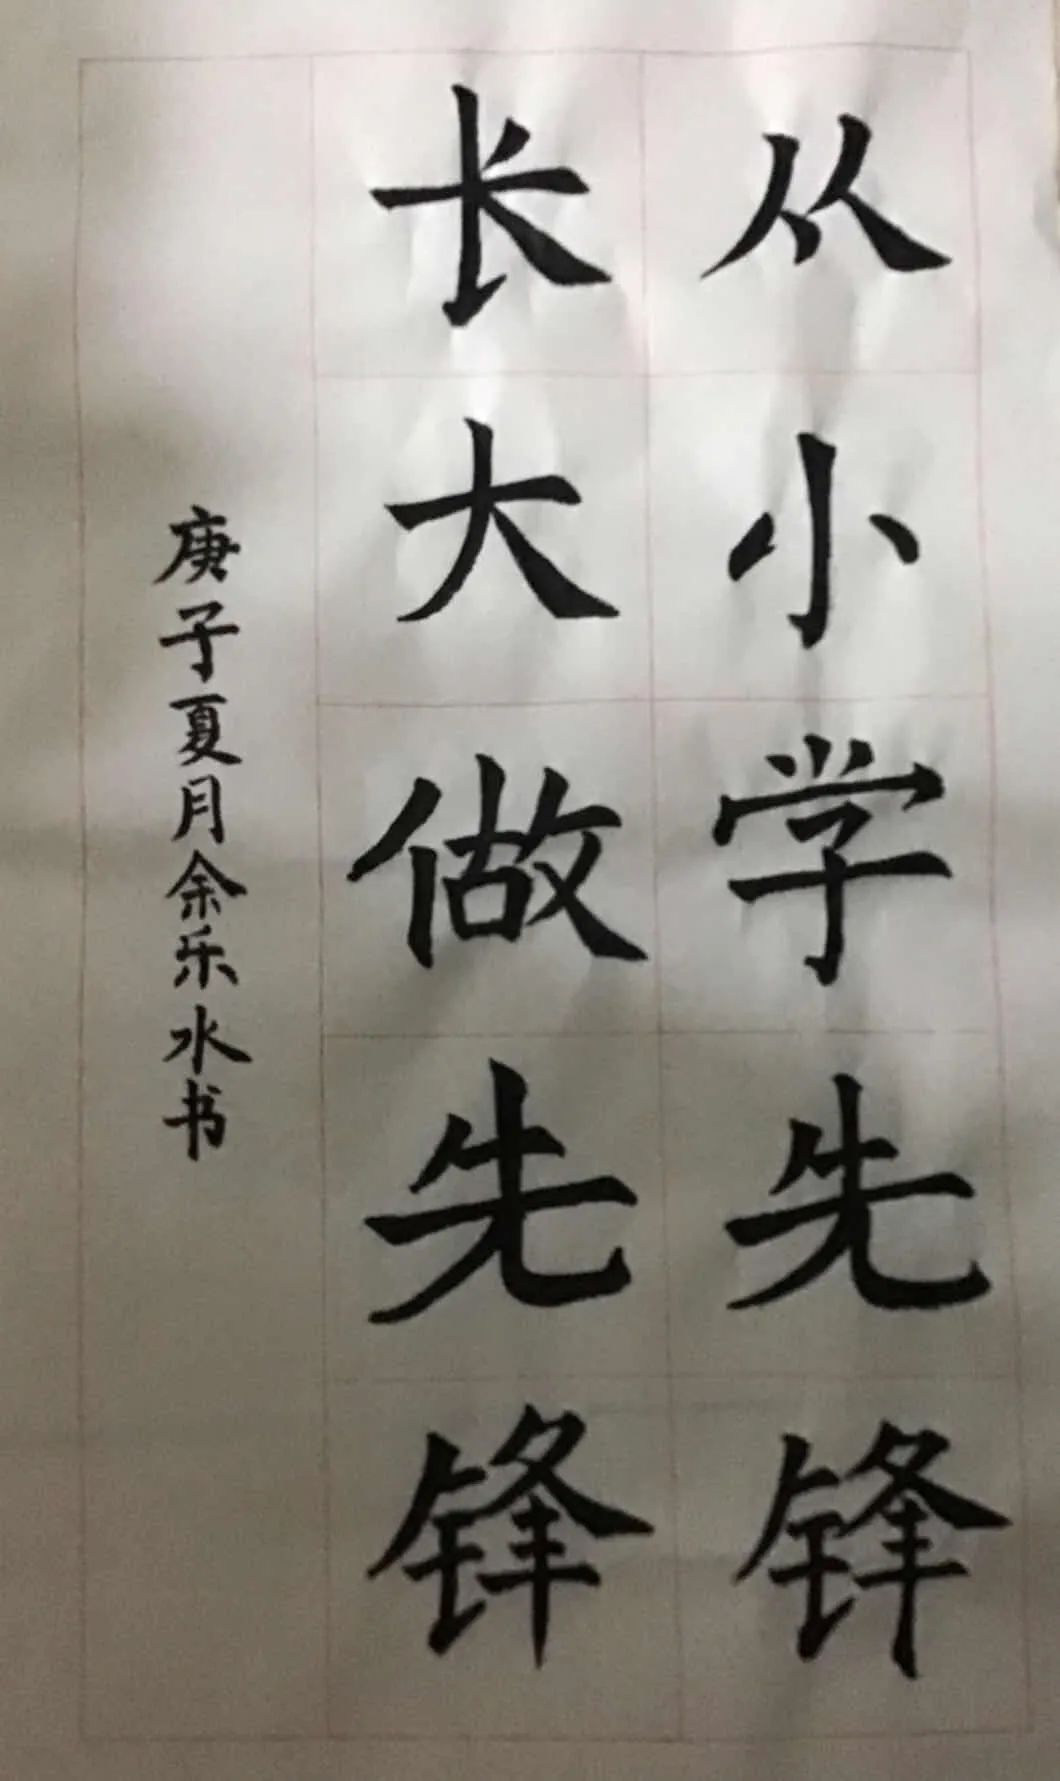 从小学先锋
长大做先锋
庚子夏月余乐水书